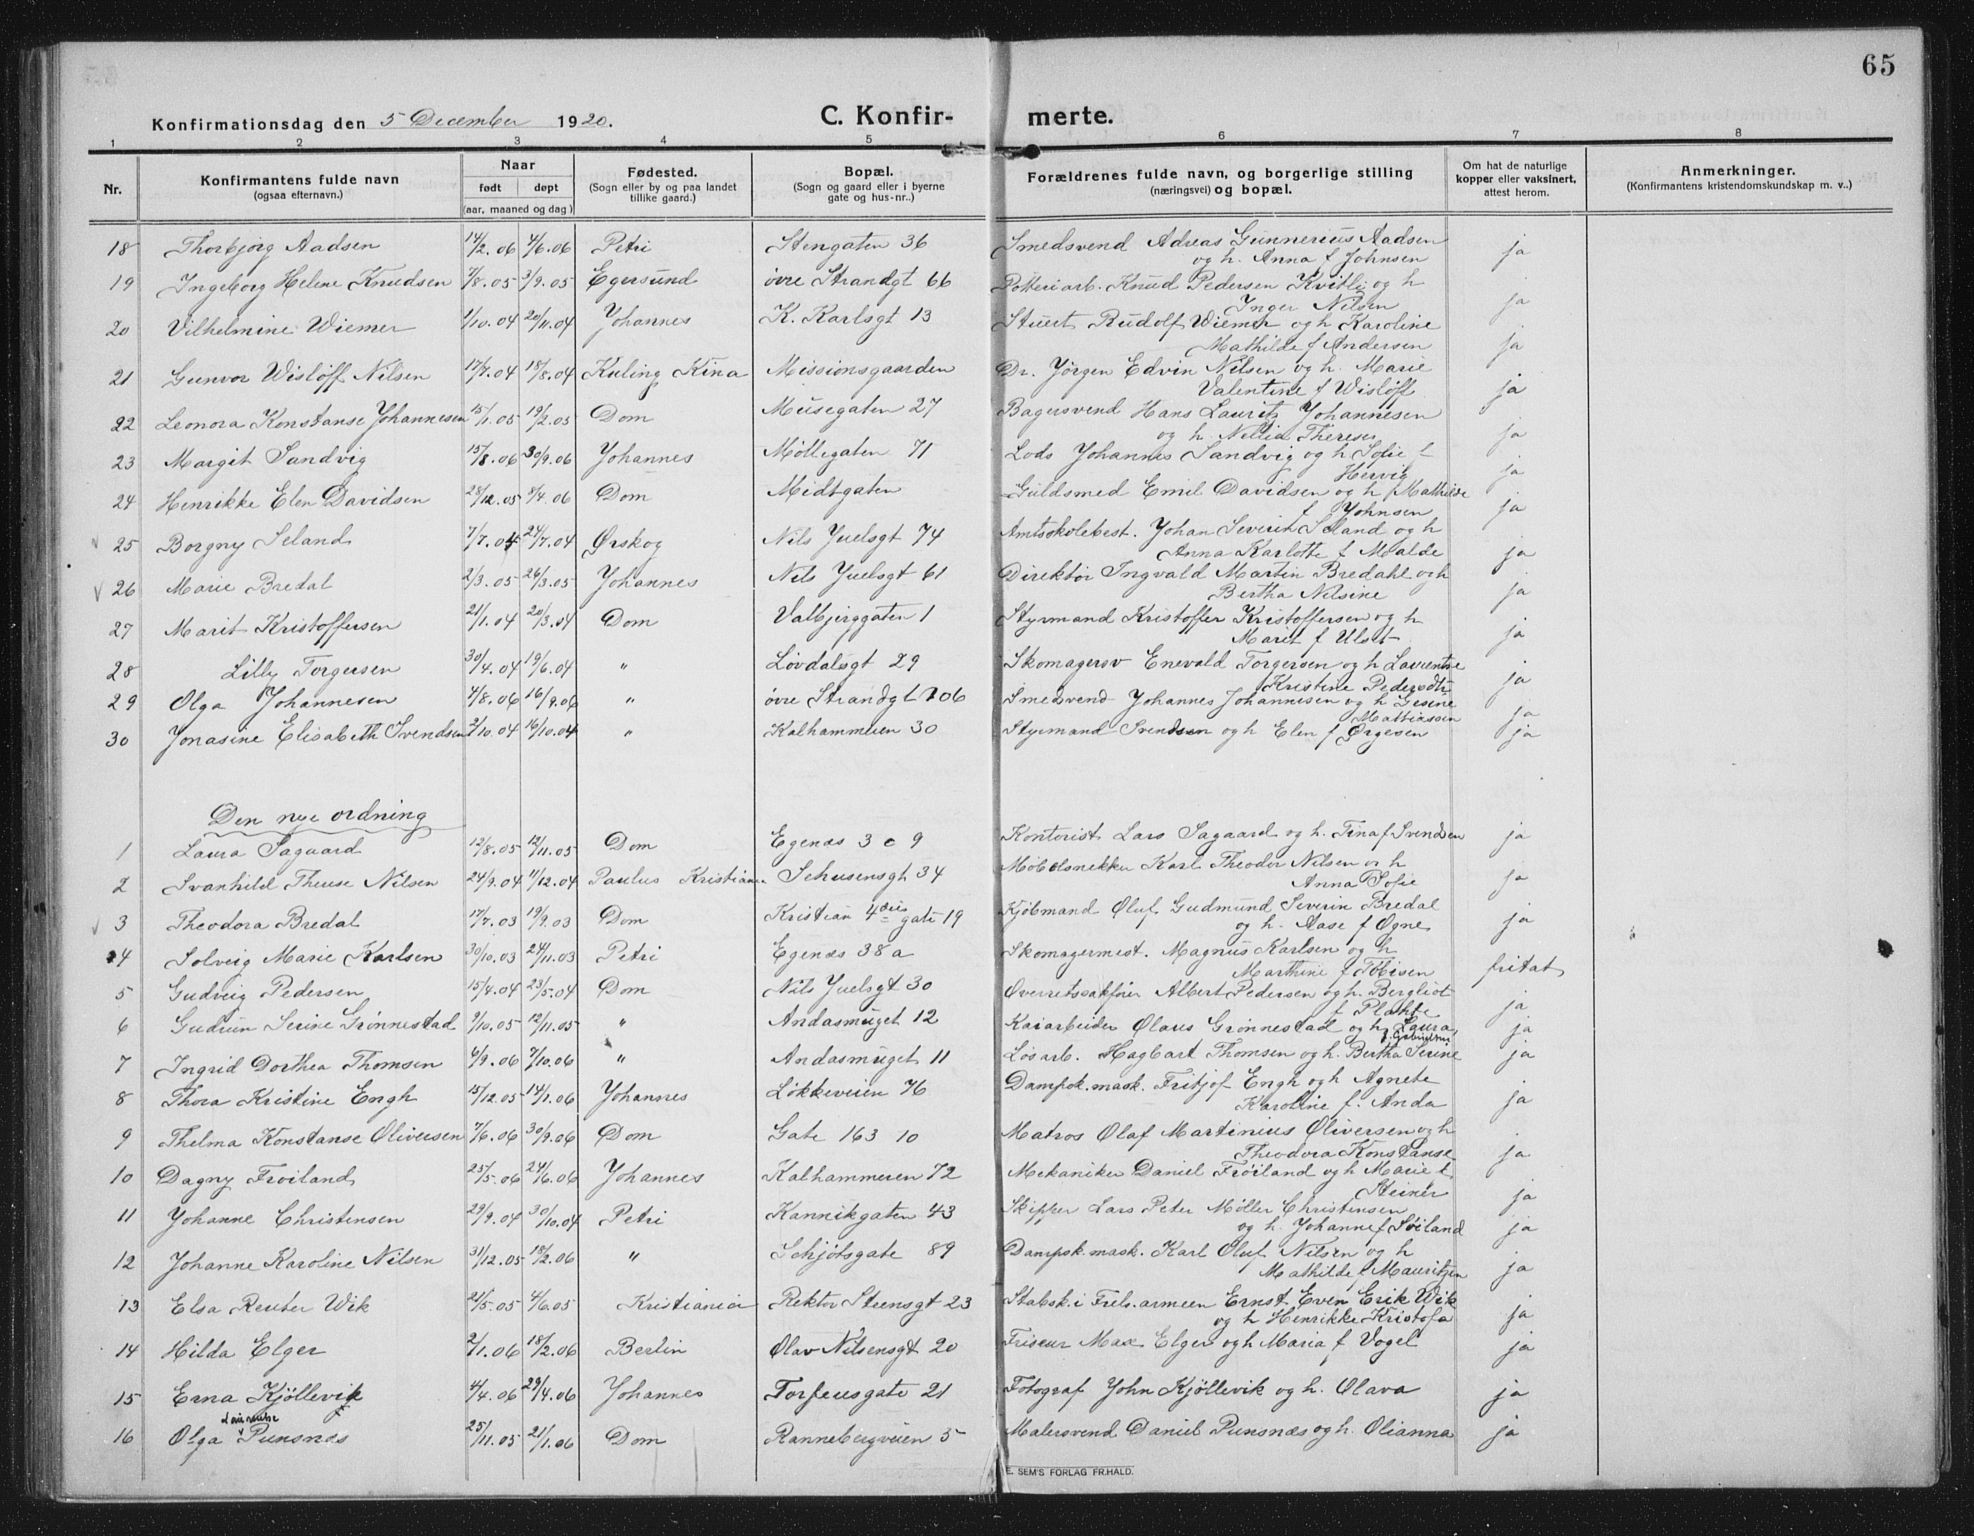 65
Konfirmationsdag den 5 December 1920. C. Konfir- merte.
1 2 3 4 5 6 7 8
Nr. Konfirmantens fulde navn (ogsaa efternavn.) Naar født døpt (aar, maaned og dag) Fødested. (Sogn eller by og paa landet tillike gaard.) Bopæl. (Sogn og gaard eller i byerne gate og hus-nr.,) Forældrenes fulde navn, og borgerlige stilling (næringsvei) og bopæl. Om hat de naturlige kopper eller vaksinert, attest herom. Anmerkninger. (Konfirmantens kristendomskundskap m. v..)
18 Thorbjørg Aadsen 14/2.06 4/6.06 Petri Stengaten 36 Smedsvend Adreas Gunnerius Aadsen ja
og h. Anna f Johnsen
19 Ingeborg Helene Knudsen 7/8.05 3/9.05 Egersund øvre Strandgt 66 Potteriarb. Knud Pedersen Kvitli og h ja
Inger Nilsen
20 Vilhelmine Wiemer 1/10.04 20/11.04 Johannes K. Karlsgt 13 Stuert Rudolf Wiemer og h Karoline ja
Mathilde f Andersen
21 Gunvor Wisløff Nilsen 17/7.04 18/8.04 Kuling Kina Missionsgaarden Dr. Jørgen Edvin Nilsen og h. Marie ja
Valentine f Wisløff
22 Leonora Konstanse Johannesen 15/1.05 19/2.05 Dom Musegaten 27 Bagersvend Hans Lauritz Johannesen ja
og h. Therese
23 Margit Sandvig 15/8.06 30/9.06 Johannes Møllegaten 71 Lods Johannes Sandvig og h Sofie f ja
Hervig
24 Henrikke Elen Davidsen 28/12.05 8/4.06 Dom Midtgaten Guldsmed Emil Davidsen og h Mathilde ja
f Johnsen
25 Borgny Seland 7/7.04 24/7.04 Ørskog Nils Juelsgt 74 Amtskolebest. Johan Severin Seland og h ja
Anna Karlotte f Malde
26 Marie Bredal 2/3.05 26/3.05 Johannes Nils Juelsgt 61 Direktør Ingvald Martin Bredahl og h ja
Bertha Nilsine
27 Marit Kristoffersen 21/1.04 20/3.04 Dom Valbjerggaten 1 Styrmand Kristoffer Kristoffersen og h ja
Marit f
28 Lilly Torgersen 30/4.04 19/6.04 " Løvdalsgt 29 Skomagersv Enevald Torgersen og h Laurentse ja
Kristine
29 Olga Johannesen 4/8.06 16/9.06 " øvre Strandgt 106 Smedsvend Johannes Johannesen og h Gesine ja
Mattiassen
30 Jonasine Elisabeth Svendsen 2/10.04 16/10.04 " Kalhammeien 30 Styrmand Svendsen og h Elen f Ørgesen ja
Den nye ordning
1 Laura Sagaard 12/8.05 12/11.05 Dom Egenæs 3 o 9 Kontorist Lars Sagaard og h. Tina f Svendsen ja
2 Svanhild Therese Nilsen 24/9.04 11/12.04 Paulus Kristiania Sehusensgt 34 Møbelsnekker Karl Theodor Nilsen og h ja
Anna Sofie
3 Theodora Bredal 17/7.03 19/9.03 Dom Kristian 4des gate 19 Kjøbmand Oluf Gudmund Severin Bredal ja
og h. Aase f Ogne
4 Solveig Marie Karlsen 30/10.03 24/11.03 Petri Egenæs 38 a Skomagermest. Magnus Karlsen og h fritat
Marthine f Tobisen
5 Gudveig Pedersen 15/4.04 23/5.04 Dom Nils Juelsgt 30 Overretssakfører Albert Pedersen og h. Bergliot ja
f
6 Gudrun Serine Grønnestad 9/10.05 12/11.05 " Andasmuget 12 Kaiarbeider Olaus Grønnestad og h. Laura ja
7 Ingrid Dorthea Thomsen 4/9.06 7/10.06 " Andasmuget 11 Løsarb. Hagbart Thomsen og h. Bertha Serine ja
8 Thora Kristine Engh 15/12.05 14/1.06 Johannes Løkkeveien 76 Dampsk.mask. Fritjof Engh og h Agnete ja
Karoline f. Anda
9 Thelma Konstanse Oliversen 7/6.06 30/9.06 Dom Gate 163 10 Matros Olaf Martinius Oliversen og h ja
Theodora Konstanse
10 Dagny Frøiland 25/5.06 24/6.06 Johannes Kalhammeren 72 Mekaniker Daniel Frøiland og h Marie f ja
Steiner
11 Johanne Christensen 29/9.04 30/10.04 Petri Kannikgaten 43 Skipper Lars Peter Møller Christensen ja
og h. Johanne f Søiland
12 Johanne Karoline Nilsen 31/12.05 18/2.06 " Schjøtsgate 89 Dampsk.mask. Karl Oluf Nilsen og h ja
Mathilde f Mauritzen
13 Elsa Reuter Wik 21/5.05 4/6.05 Kristiania Rektor Steensgt 23 Stabsk. i Frels.armeen Ernst Even Erik Wik ja
og h Henrikke Kristofa
14 Hilda Elger 2/1.06 18/2.06 Berlin Olav Nilsensgt 20 Friseur Max Elger og h Maria f Vogel ja
15 Erna Kjøllevik 4/4.06 29/4.06 Johannes Torfeusgate 21 Fotograf John Kjøllevik og h. Olava ja
16 Olga Punsnæs 25/11.05 21/1.06 Dom Rannebergveien 5 Malersvend Daniel Punsnæs og h. Olianna ja
E. SEM'S FORLAG FR.HALD.